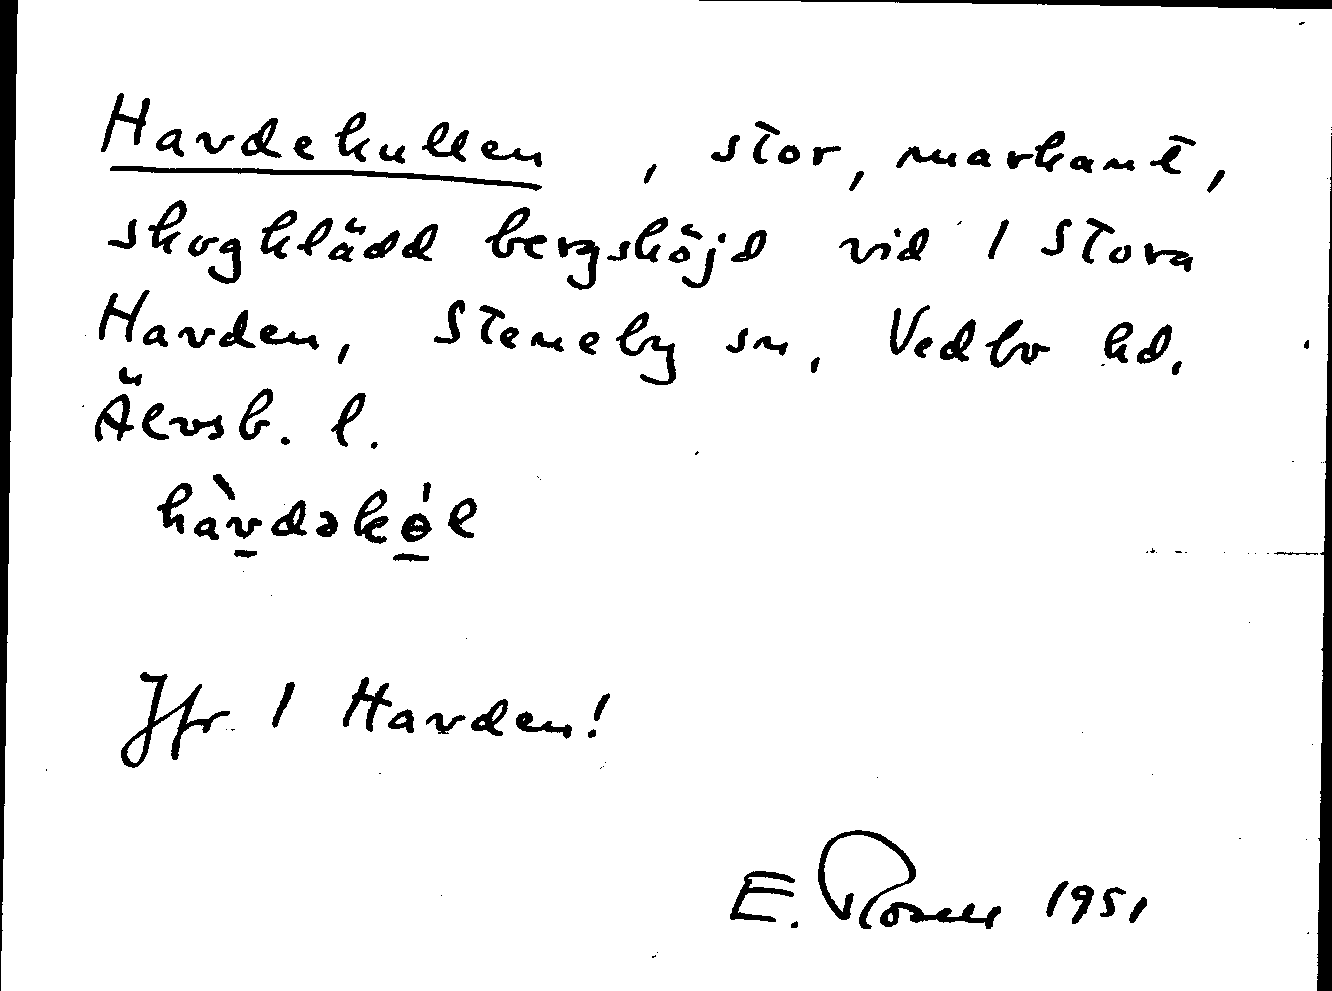 Havdekullen, stor, markant,
skogklädd bergshöjd vid 1 Stora
Havden, Steneby sn, Vedbo hd.
Älvsb. l.
hàv̲dəkө̲́l
Jfr 1 Havden!
E. 1951